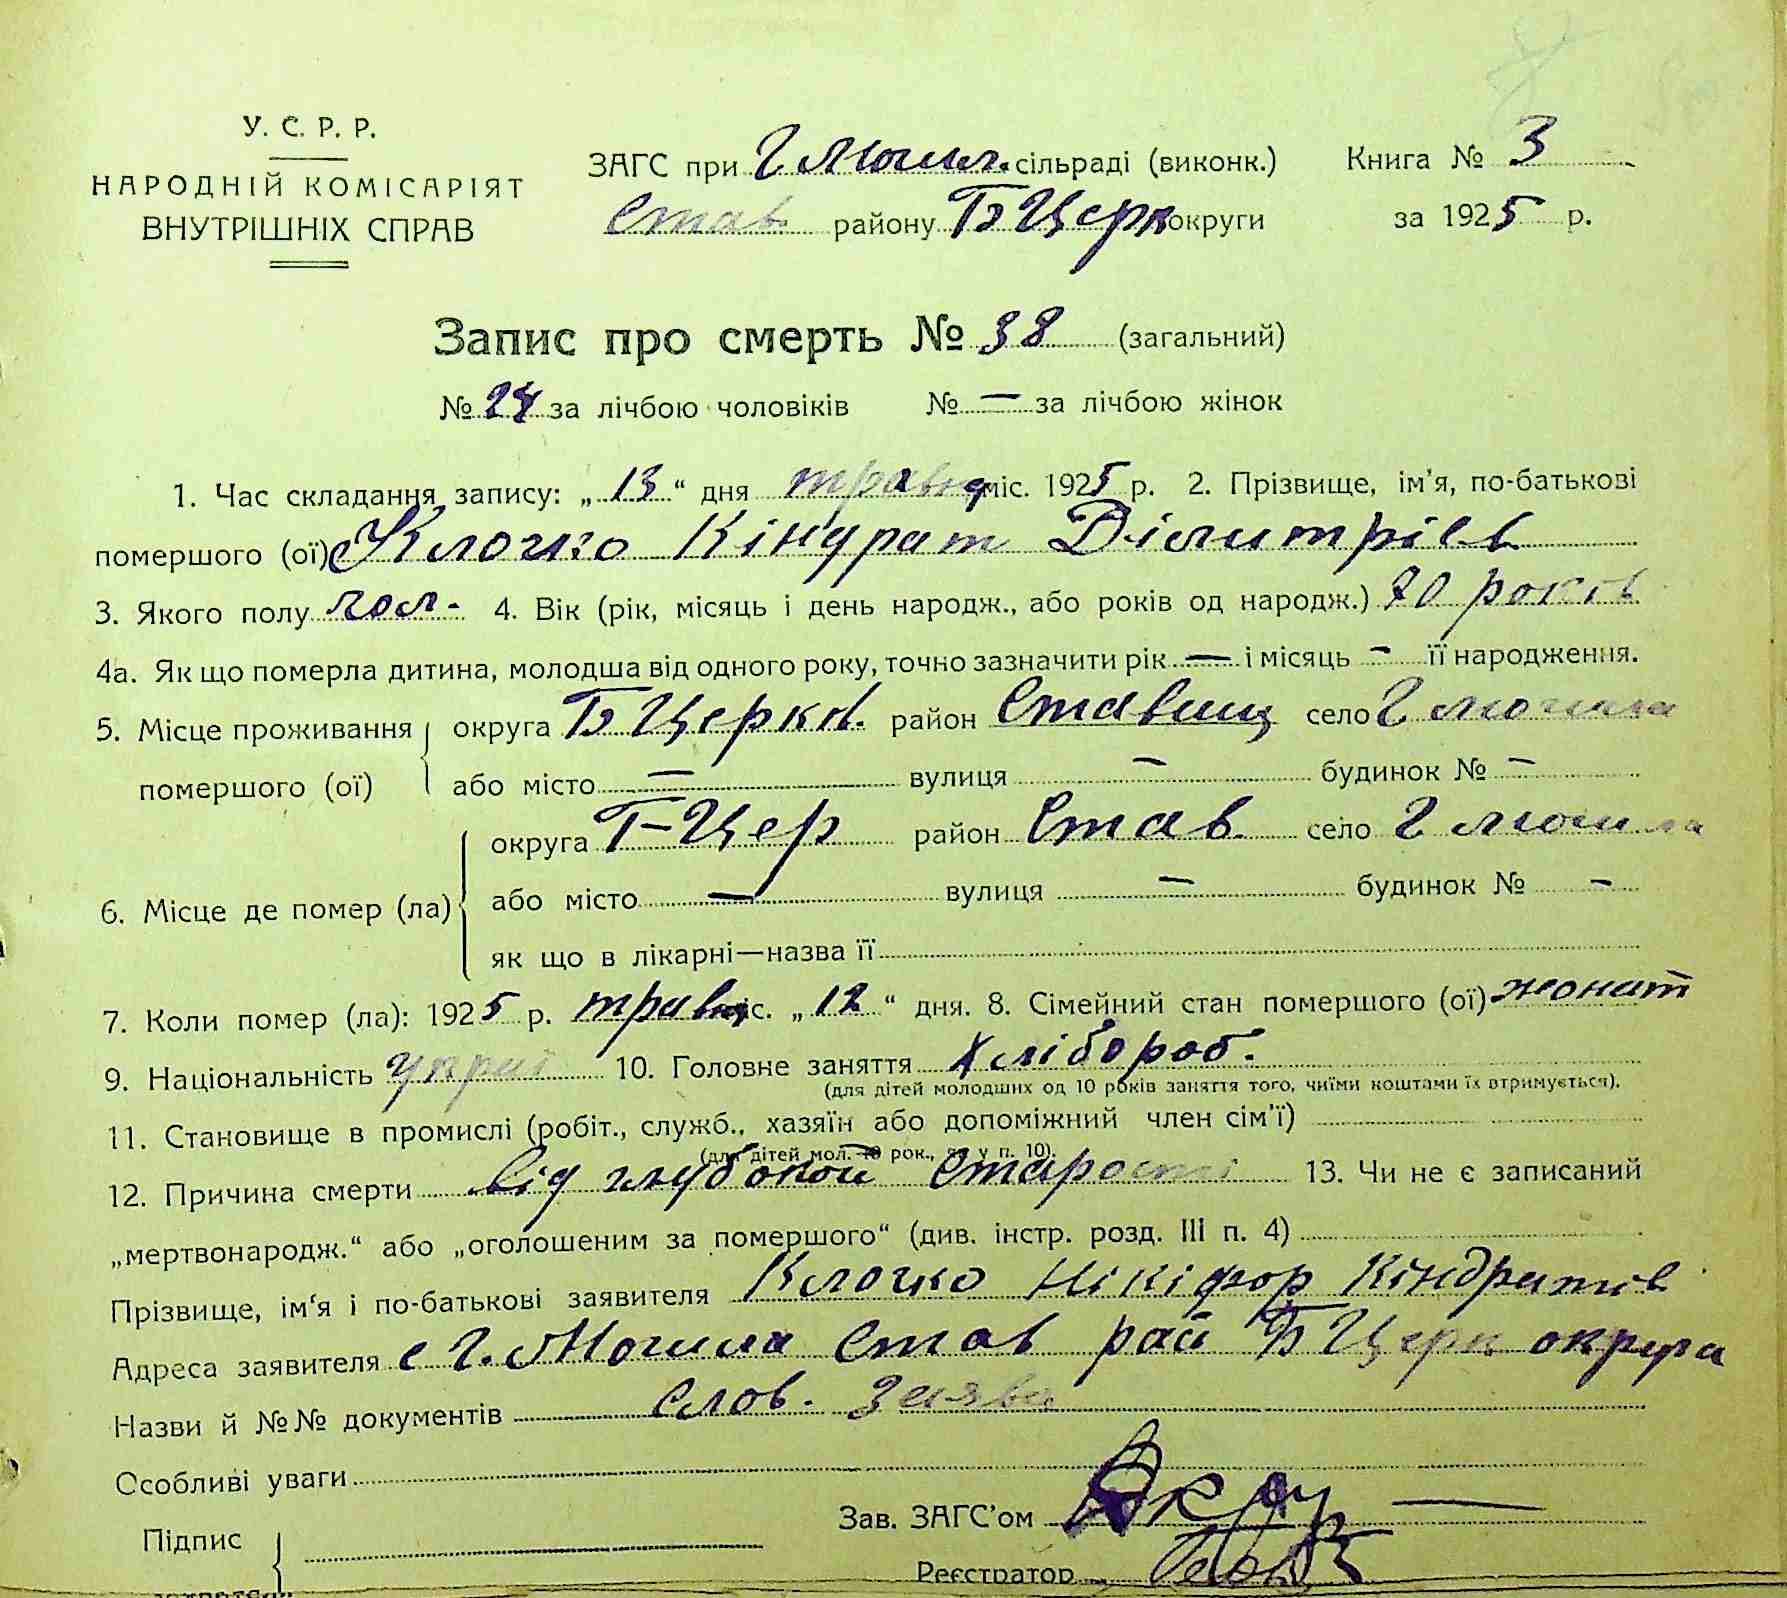 У. С. Р. Р.
НАРОДНІЙ КОМІСАРІЯТ
ВНУТРІШНІХ СПРАВ
ЗАГС при Г Могил. сільраді (виконк.) Книга № 3
Став. району Б Церк округи за 1925 р.
Запис про смерть № 38 (загальний)
№ 24 за лічбою чоловіків № — за лічбою жінок
1. Час складання запису: „13“ дня травня міс. 1925 р. 2. Прізвище, ім'я, по-батькові
помершого (ої) Клочко Кіндрат Дімитріев
3. Якого полу чол. 4. Вік (рік, місяць і день народж., або років од народж.) 70 років
4а. Як що померла дитина, молодша від одного року, точно зазначити рік — і місяць – її народження.
5. Місце проживання помершого (ої) округа Б Церкв. район Ставищ село Г могила
або місто — вулиця — будинок № —
6. Місце де помер (ла) округа Б-Цер район Став. село Г могила
або місто — вулиця — будинок № –
як що в лікарні—назва її
7. Коли помер (ла): 1925 р. травня міс. „12“ дня. 8. Сімейний стан помершого (ої) жонат
9. Національність украї 10. Головне заняття хлібороб.
(для дітей молодших од 10 років заняття того, чиїми коштами їх втримується).
11. Становище в промислі (робіт., служб., хазяїн або допоміжний член сім'ї)
(для дітей мол. 10 рок., як у п. 10).
12. Причина смерти від глубокой старости 13. Чи не є записаний
„мертвонародж.“ або „оголошеним за помершого“ (див. інстр. розд. III п. 4)
Прізвище, ім'я і по-батькові заявителя Клочко Нікіфор Кіндратів
Адреса заявителя с Г. Могила Став рай Б Церк округа
Назви й №№ документів слов. заява
Особливі уваги
Зав. ЗАГС'ом
Підпис
Реєстратор